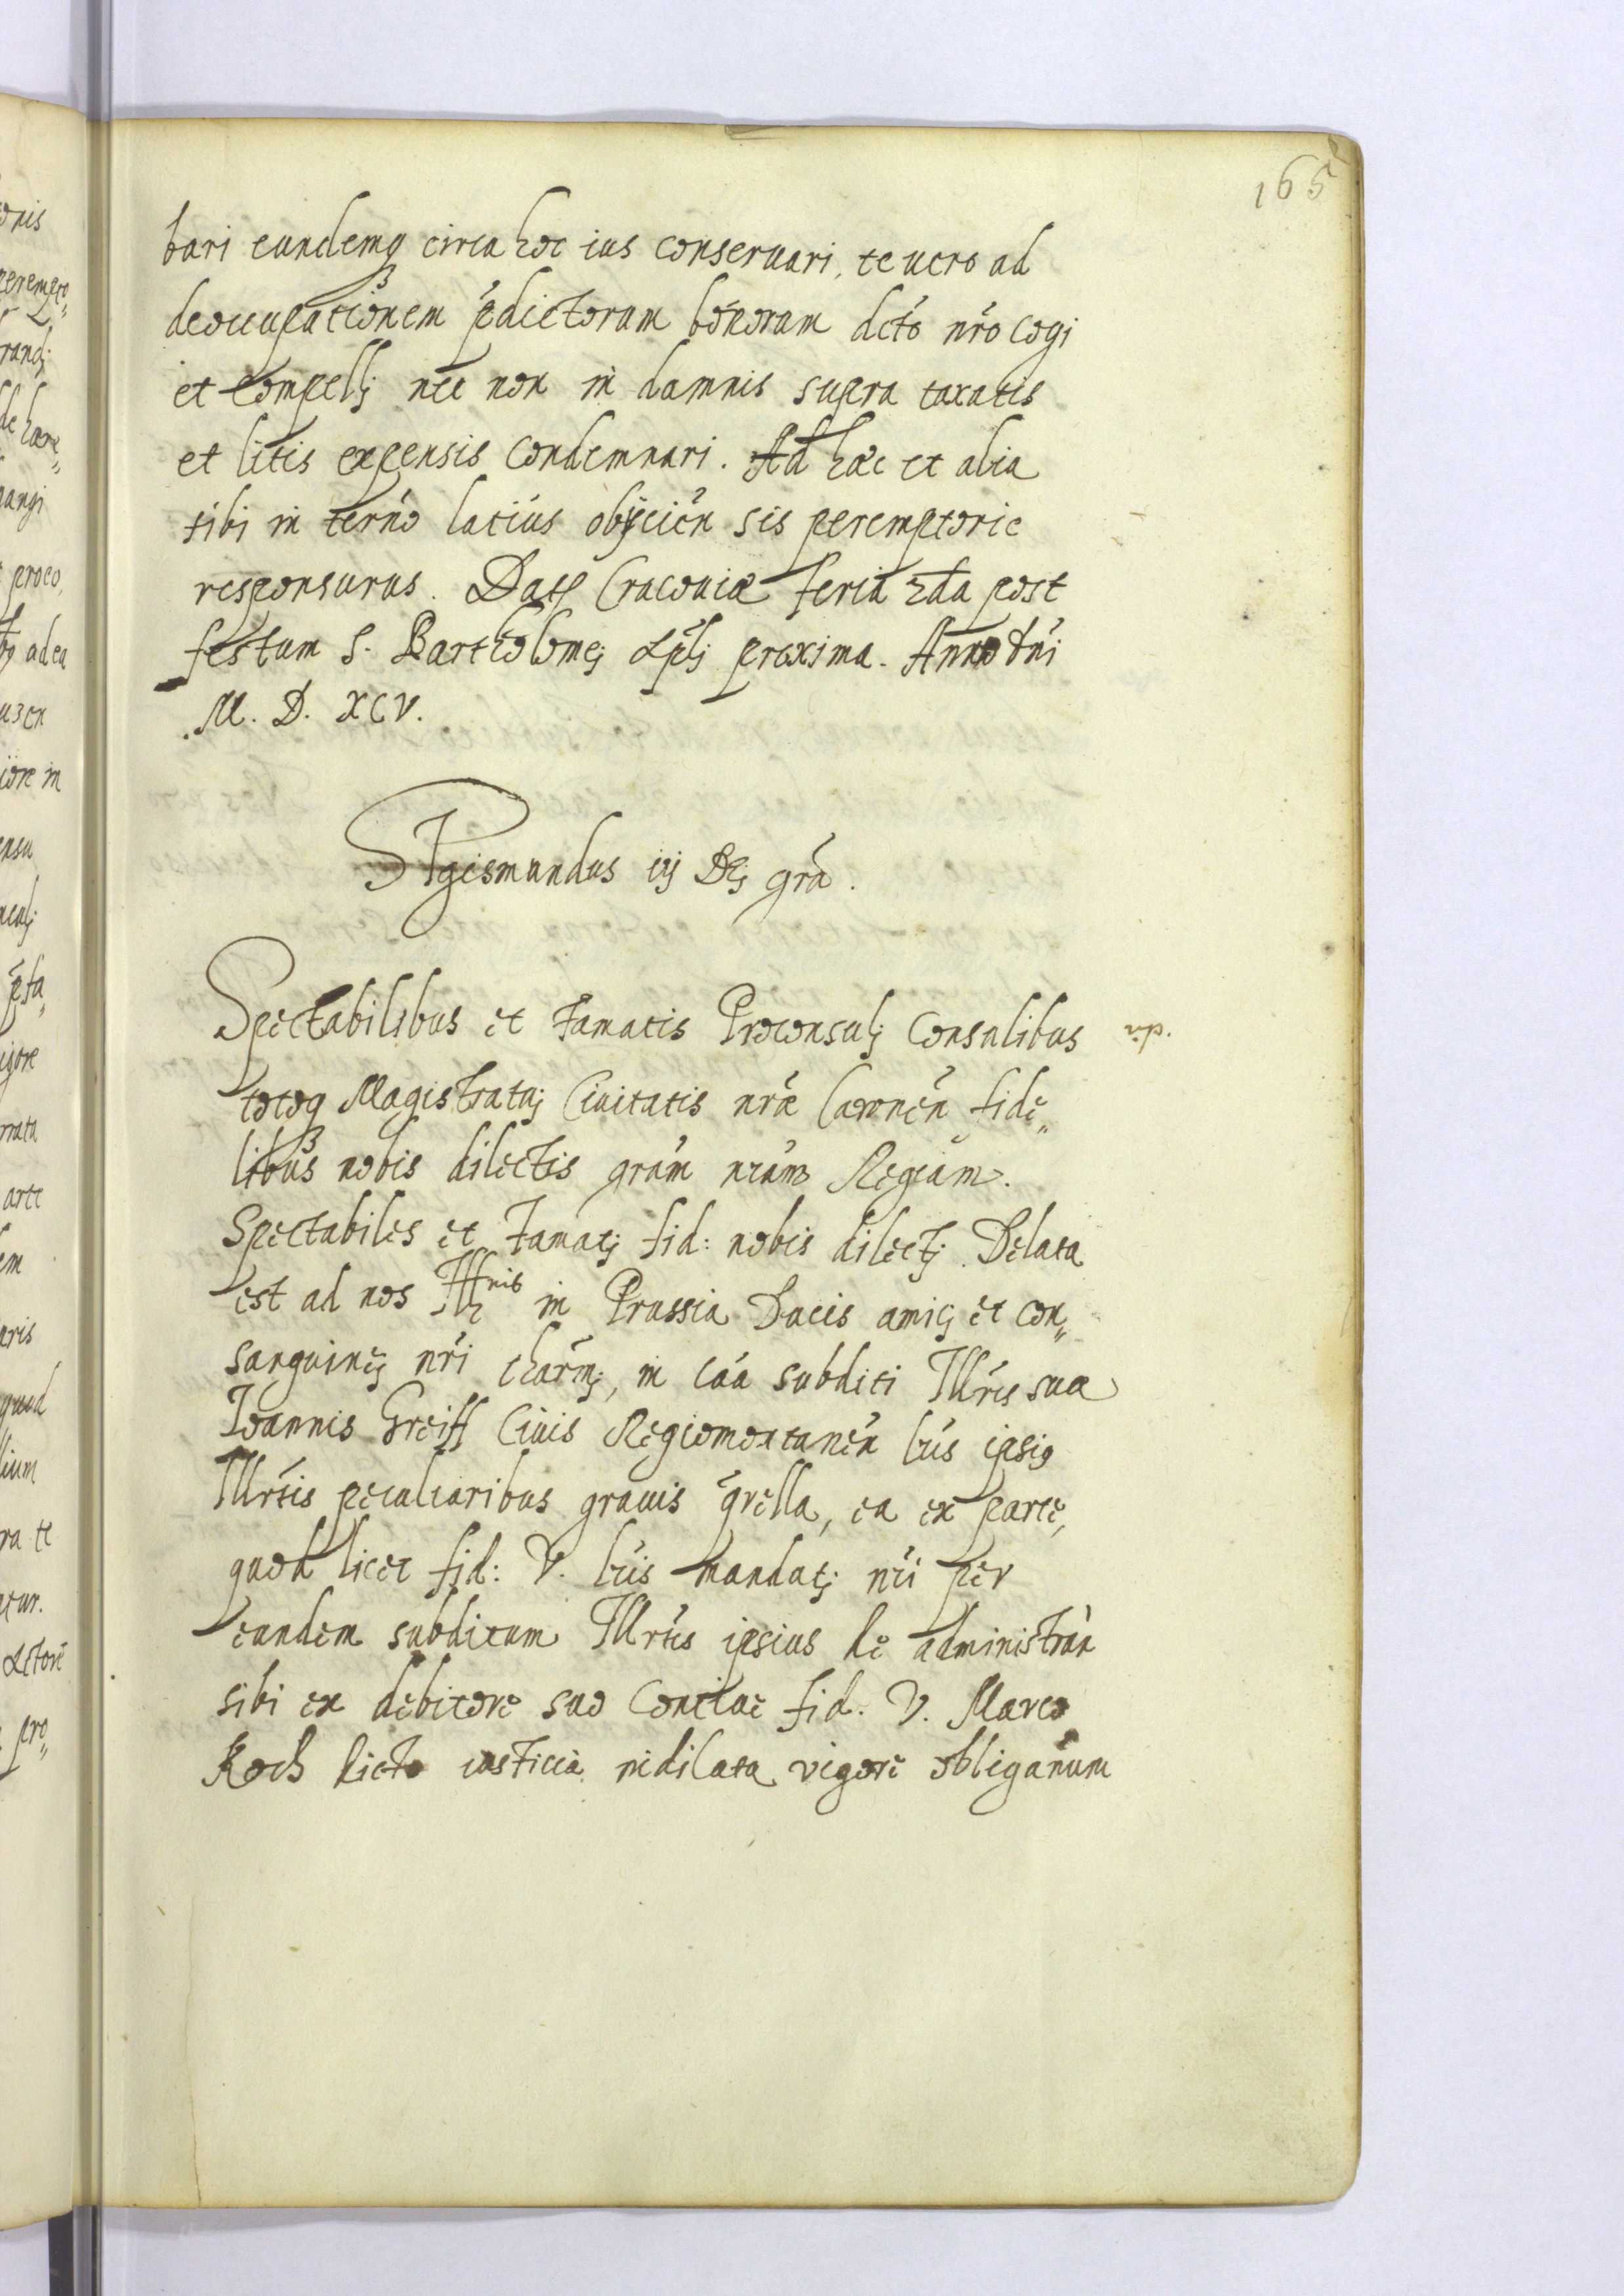 165
bari eundemq circa hoc ius conseruari, te uero ad
deoccupationem p̄dictorum bonorum dcto nro cogi
et compellj nec non in damnis supra taxatis
et litis expensis condemnari. Ad hæc et alia
tibi in termo latius obijcien sis peremptorie
responsurus. Dat Cracouiæ feria 2da post
festum S. Bartholomej Aplj proxima. Anno Dni
M. D. XCV.
Sigismundus iij Dej gra.
Spectabilibus et famatis Proconsulj Consulibus
totoq Magistratuj Ciuitatis nræ Caownen fide„
libus nobis dilectis gram nram Regiam.
Spectabiles et famatj fid: nobis dilectj. Delata
est ad nos Illnis in Prussia Ducis amicj et con„
sanguinej nri charmj, in caa subditi Illris suæ
Ioannis Greiff Ciuis Regiomontanen lris ipsig
Illrtis peculiaribus grauis qrella, ea ex parte,
quod licet fid: V. lris mandatj nri per
eundem subditum Illrtis ipsius de administran
sibi ex debitore suo Conciue fid. V. Marco
Koch dicto iusticia indilata vigore obliganum